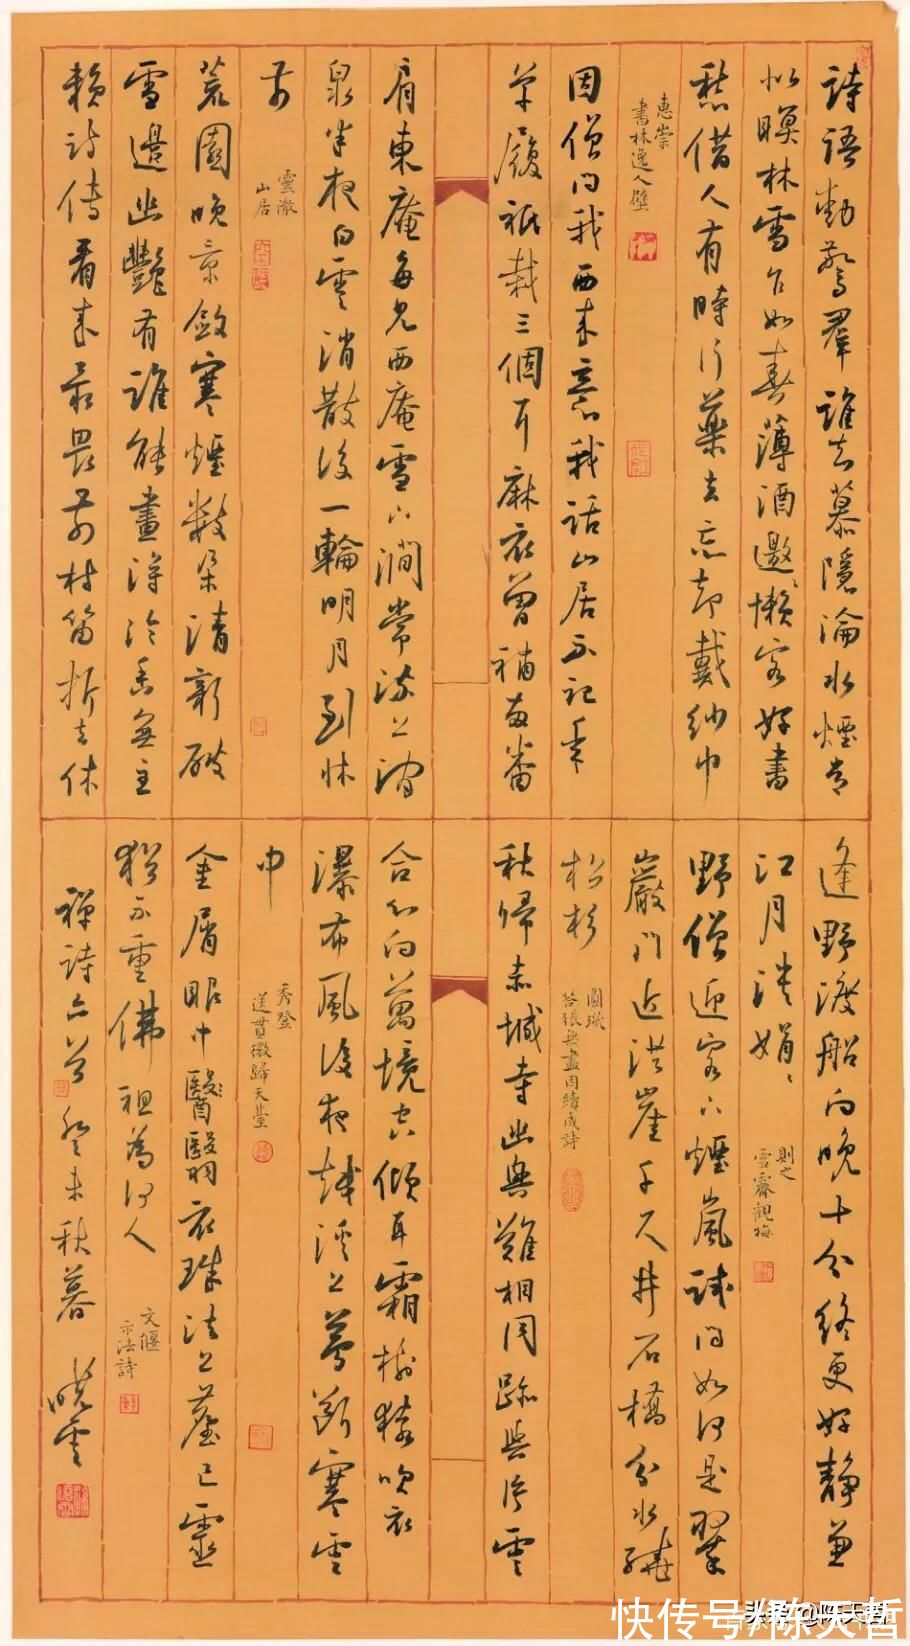 詩語動驚羣誰言慕隱淪水煙常
似暝林雪乍如春薄酒邀懶客好書
愁借人有時行藥去忘却戴紗巾
惠崇
書林逸人壁
因僧問我西來意我話山居不記年
草履祇栽三個耳麻衣曾補兩番
肩東庵每見西庵雪下澗常流上澗
泉半夜白雲消散後一輪明月到牀
前
雲澈
山居
荒園晚景斂寒煙數朵清新破
雪邊幽豔有誰能畫得冷香無主
賴詩傳看來最畏前村笛折去休
逢野渡船向晚十分終更好靜兼
江月淡娟々
則之
雪霽觀梅
野僧迎客下煙嵐試問如何是翠
巖門近洪崖千尺井石橋分水繞
松杉
圓璣
答張無盡因續成詩
秋歸赤城寺幽興難相同跡與片雲
合心向萬境空傾耳霜樹猿吹衣
瀑布風後夜越溪上夢斷寒雲
中
秀登
送貫微歸天臺
金屑眼中醫翳衣珠法上塵己靈
猶不重佛祖為何人
文偃
示法詩
禪詩六首癸未秋暮 曉雲
快传号/陈天哲